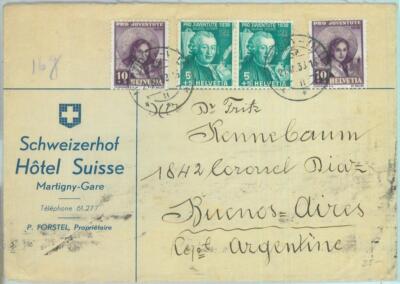 16g
PRO JUVENTUTE
10
HELVETIA
PRO JUVENTUTE 1938
5
+5 HELVETIA
PRO JUVENTUTE 1938
5
+5 HELVETIA
PRO JUVENTUTE
10
HELVETIA
Schweizerhof
Hôtel Suisse
Martigny-Gare
Téléphone 61.277
P. FORSTEL, Propriétaire
Dr Fritz
Kennebaum
1842 Coronel Diaz
Buenos=Aires
Argentine